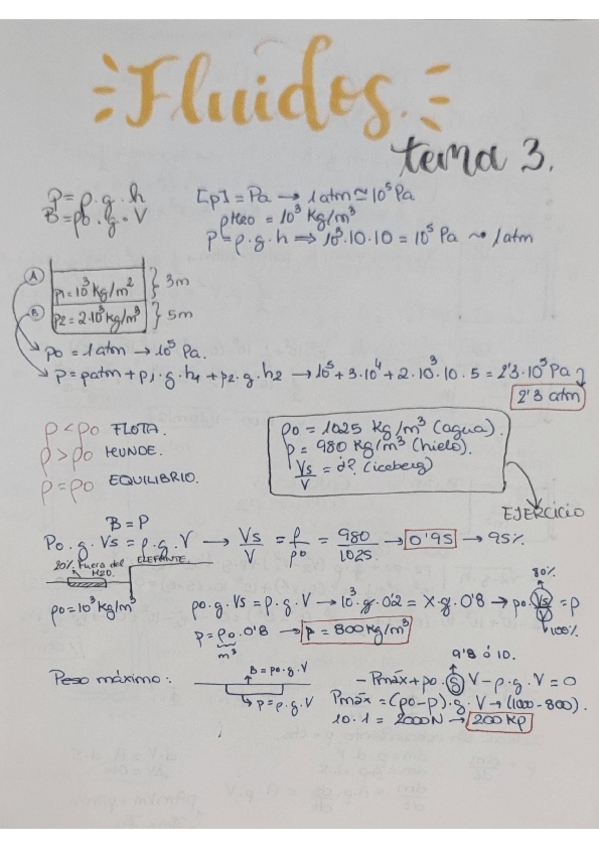 Fluidos.
tema 3.
P = ρ . g . h
B = ρo . g . V
[p] = Pa → 1 atm ≃ 10⁵ Pa
ρH2O = 10³ Kg/m³
P = ρ . g . h ⟹ 10³ . 10 . 10 = 10⁵ Pa ⤳ 1 atm
A
ρ1 = 10³ Kg/m²
3m
B
ρ2 = 2·10³ Kg/m³
5m
po = 1 atm → 10⁵ Pa.
P = patm + ρ1 . g . h1 + ρ2 . g . h2 → 10⁵ + 3·10⁴ + 2·10³·10·5 = 2'3·10⁵ Pa
2'3 atm
ρ < ρo FLOTA.
ρ > ρo HUNDE.
ρ = ρo EQUILIBRIO.
ρo = 1025 Kg/m³ (agua).
ρ = 980 Kg/m³ (hielo).
Vs/V = ¿? (iceberg)
EJERCICIO
B = P
ρo . g . Vs = ρ . g . V → Vs/V = ρ/ρo = 980/1025 → 0'95 → 95%.
20% Fuera del H2O.
ELEFANTE.
ρo = 10³ Kg/m³
ρo . g . Vs = ρ . g . V → 10³ . g . 0'2 = X . g . 0'8 → ρo . Vs/V = ρ
80%
100%
ρ = ρo . 0'8 → ρ = 800 Kg/m³
m³
9'8 ó 10.
Peso máximo:
B = ρo . g . V
P = ρ . g . V
- Pmáx + ρo . g V - ρ . g . V = 0
Pmáx = (ρo - ρ) . g . V → (1000 - 800) .
10 . 1 = 2000 N → 200 Kp